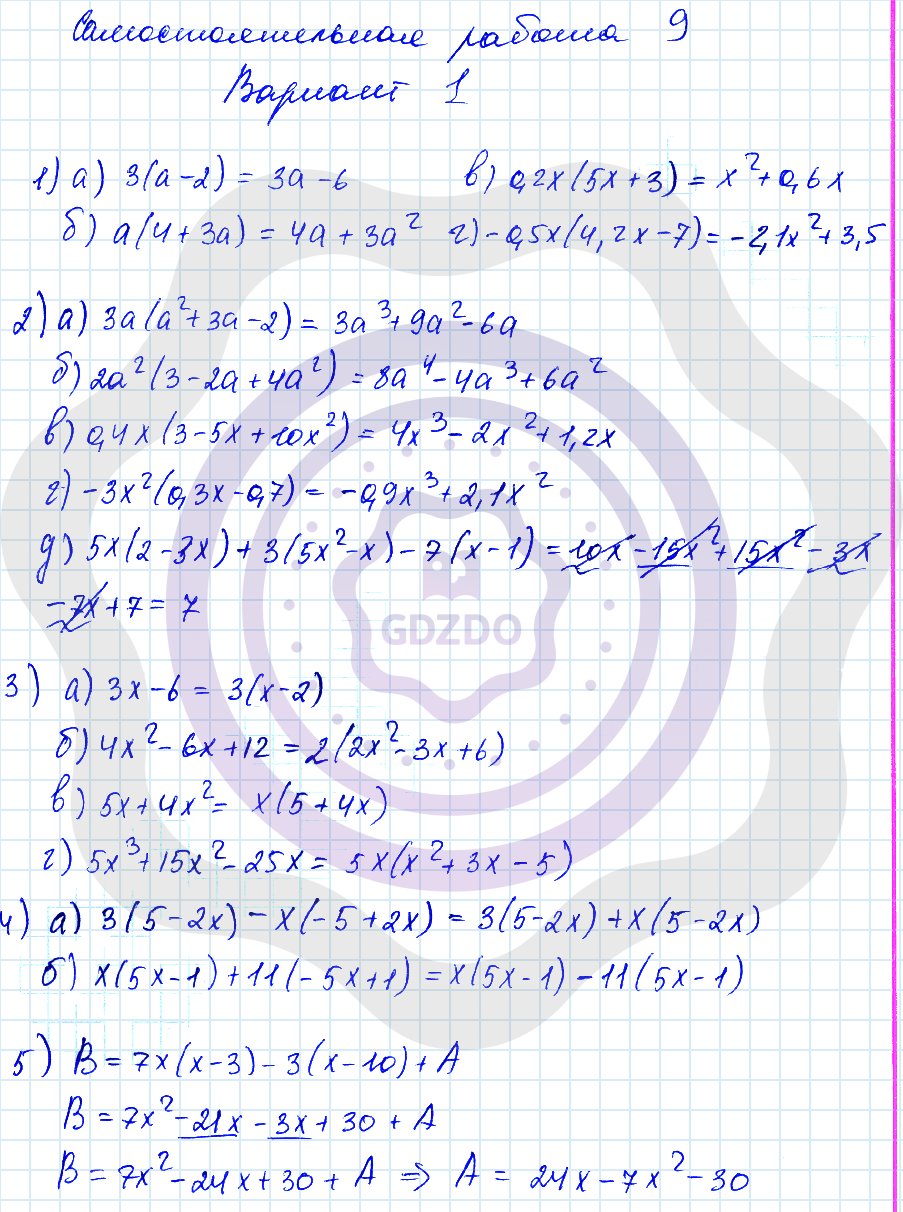 Самостоятельная работа 9
Вариант 1
1) а) 3(a-2) = 3a-6 в) 0,2x(5x+3) = x²+0,6x
б) a(4+3a) = 4a+3a² г) -0,5x(4,2x-7) = -2,1x²+3,5
2) а) 3a(a²+3a-2) = 3a³+9a²-6a
б) 2a²(3-2a+4a²) = 8a⁴-4a³+6a²
в) 0,4x(3-5x+10x²) = 4x³-2x²+1,2x
г) -3x²(0,3x-0,7) = -0,9x³+2,1x²
д) 5x(2-3x)+3(5x²-x)-7(x-1) = 10x-15x²+15x²-3x
-7x+7 = 7
GDZDO
3) а) 3x-6 = 3(x-2)
б) 4x²-6x+12 = 2(2x²-3x+6)
в) 5x+4x² = x(5+4x)
г) 5x³+15x²-25x = 5x(x²+3x-5)
4) а) 3(5-2x)-x(-5+2x) = 3(5-2x)+x(5-2x)
б) x(5x-1)+11(-5x+1) = x(5x-1)-11(5x-1)
5) B = 7x(x-3)-3(x-10)+A
B = 7x²-21x-3x+30+A
B = 7x²-24x+30+A ⇒ A = 24x-7x²-30